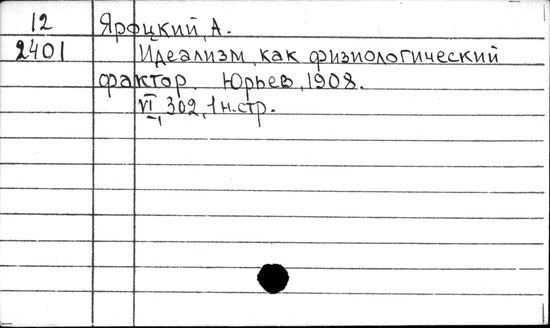 12 Яроцкий, А.
2401 Идеализм, как физиологический
фактор. Юрьев, 1908.
VI, 302, 1 н. стр.